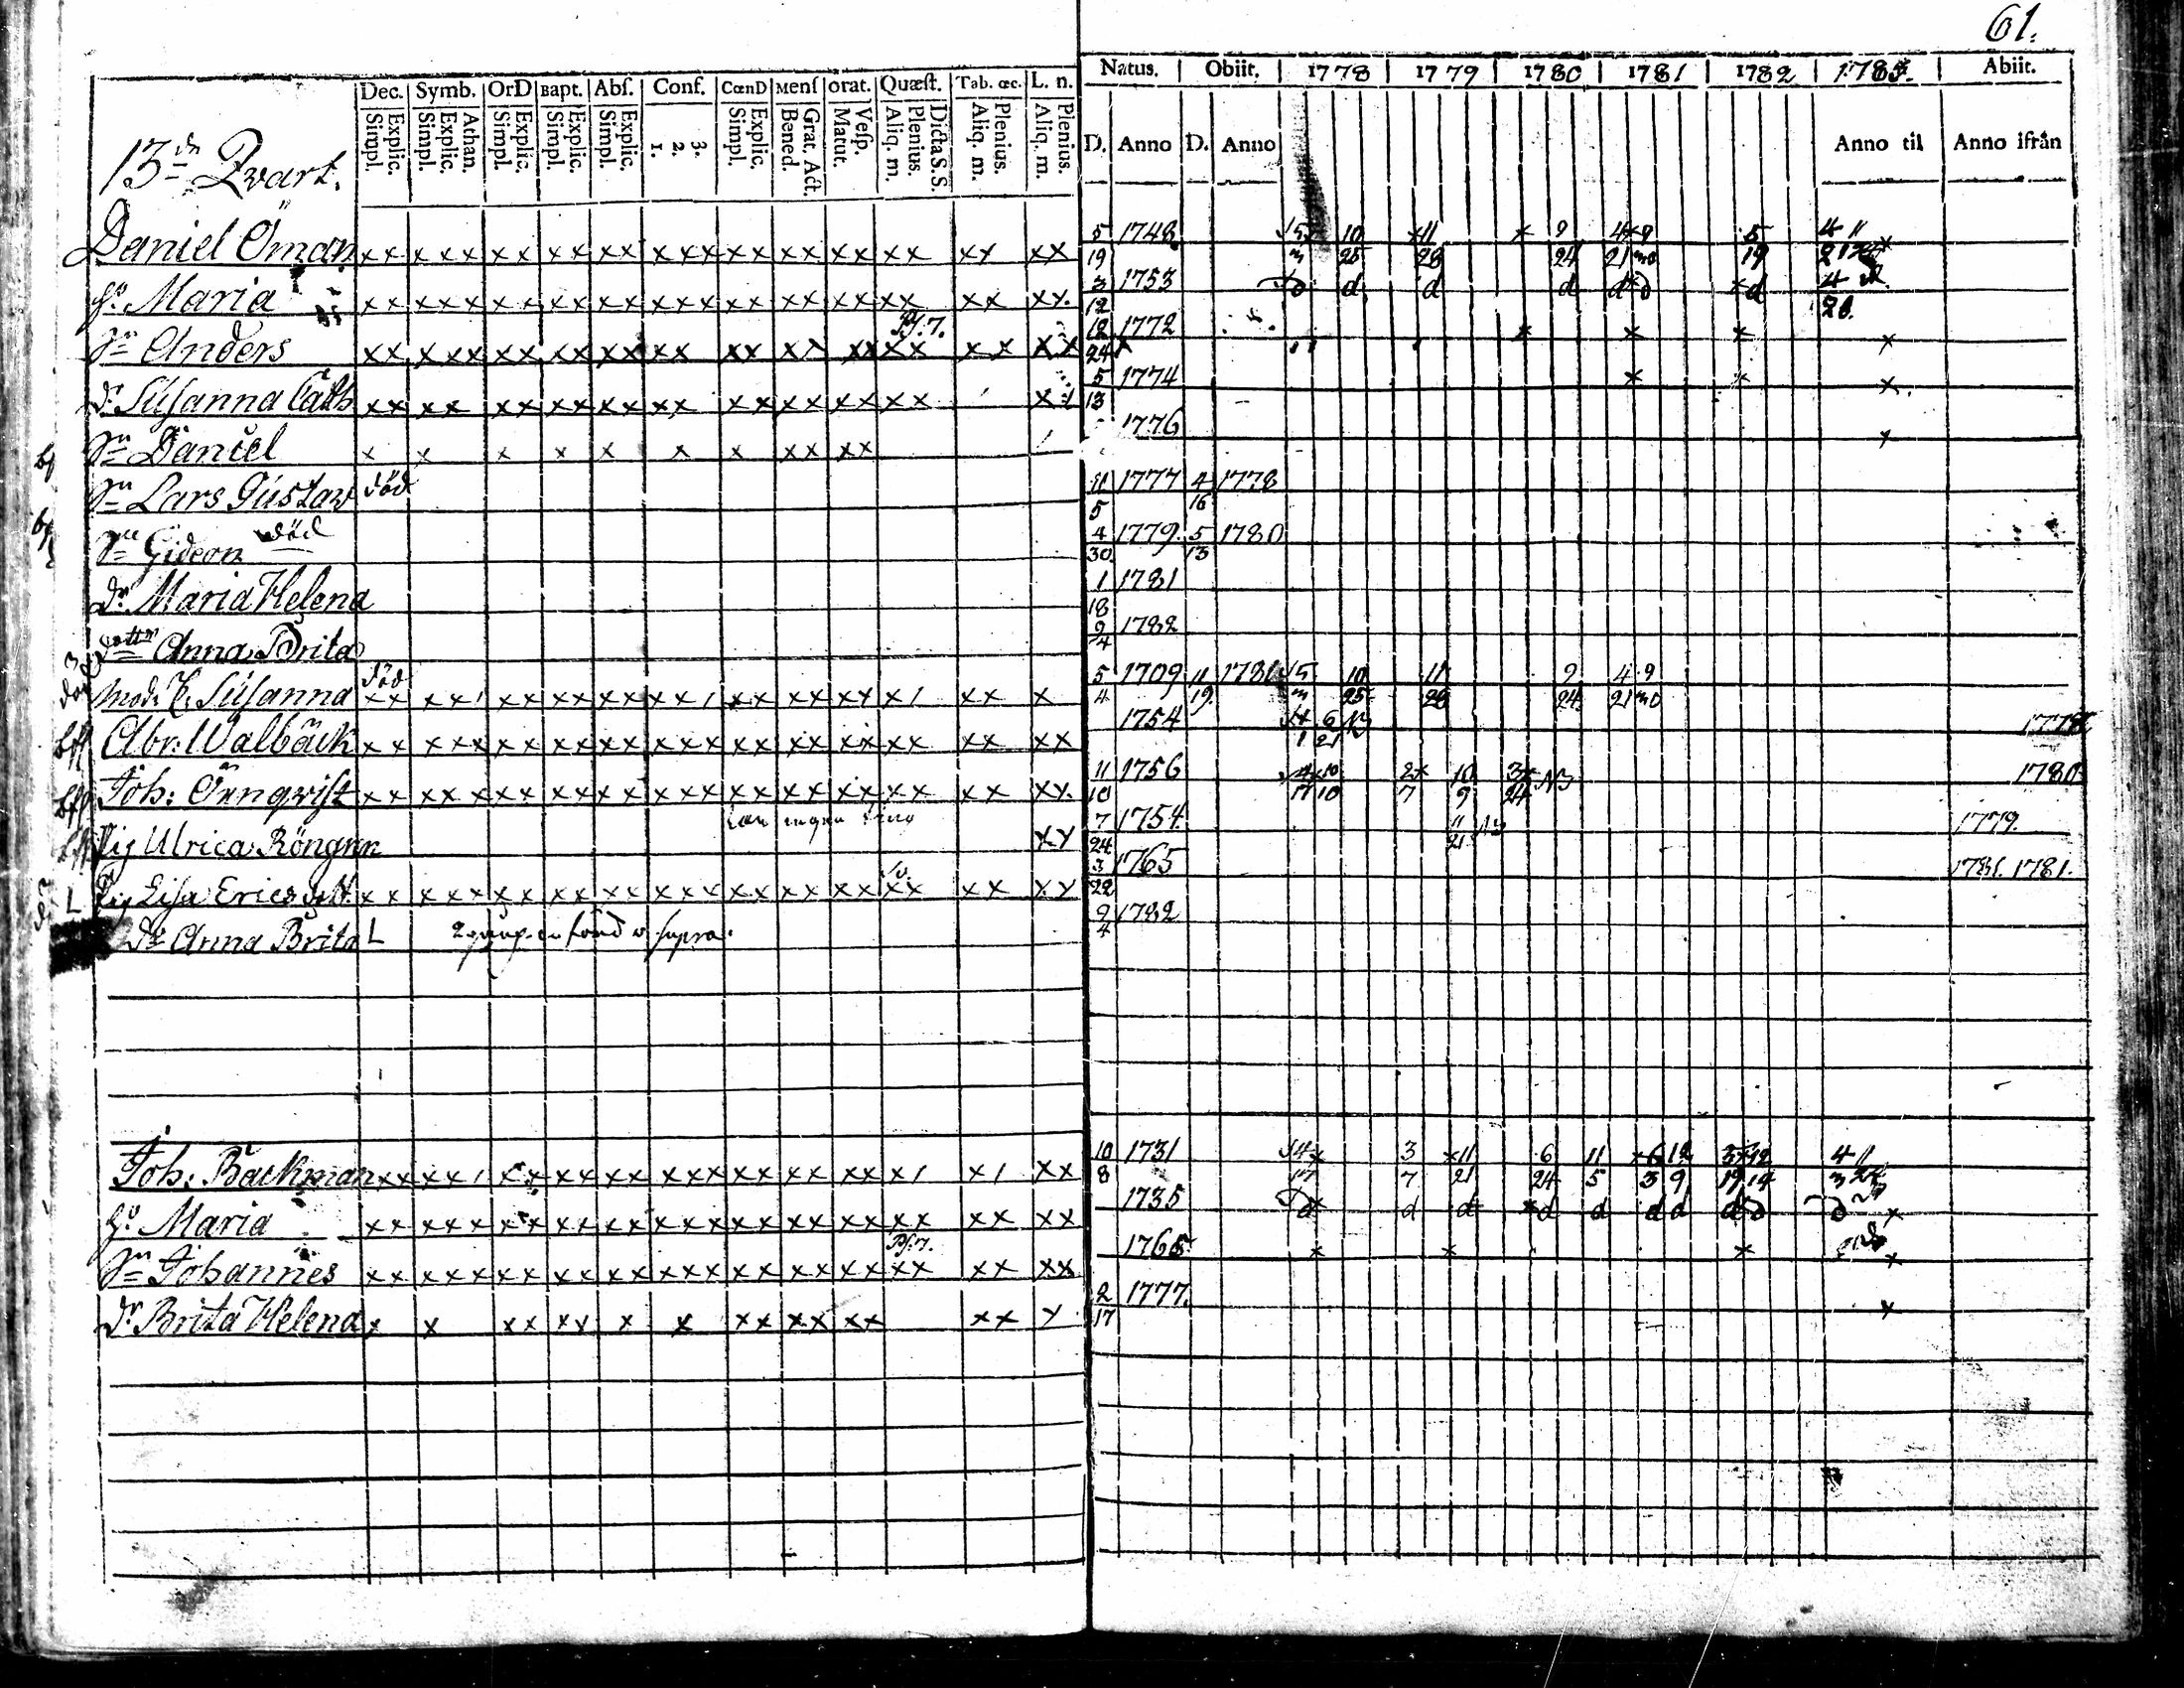 61.
Dec. Symb. OrD Bapt. Abſ. Conf. CœnD Menſ orat. Quæſt. Tab. œc. L. n. Natus. Obiit. 1778 1779 1780 1781 1782 1783. Abiit.
Explic. Simpl. Athan. Explic. Simpl. Explic. Simpl. Explic. Simpl. Explic. Simpl. 3. 2. 1. Explic. Simpl. Grat. Act. Bened. Veſp. Matut. Dicta S.S. Plenius. Aliq. m. Plenius. Aliq. m. Plenius. Aliq. m. D. Anno D. Anno Anno til Anno ifrån
13de Qvart.
Daniel Öman xx xxx xx xx xx xxx xx xx xx xx xx xx 5/19 1748 5/m 10/25 x 11/28 x 9/24 4x9 21 5/19 4 11
hu Maria xx xxx xx xx xx xxx xx xx xx xx xx xx. 3/12 1753 d d d d d d xd 4/20.
Sn Anders xx xxx xx xx xx xx xx xx xx Ps. 7. xx xx xx 12/24 1772 x x x x
dr Suſanna Cath xx xx xx xx xx xx xx xx xx xx x 5/13 1774 x x x.
Sn Daniel x x x x x x x xx xx 1776 x
Sn Lars Gustav död 11/5 1777 4/16 1778
Sn Gideon död 4/30 1779. 5/13 1780
dr Maria Helena 1/18 1781
dottr Anna Brita 9/4 1782
mod. E. Suſanna död xx xx1 xx xx xx xx1 xx xx xx x1 xx x 5/4 1709 11/19. 1781 5/m 10/25 11/28 9/24 4 9 21
Abr: Walbäck xx xxx xx xx xx xxx xx xx xx xx xx xx 1754 6/21 1778
Joh: Önnqviſt xx xx x xx xx xx xxx xx xx xx xx xx xx. 11/10 1756 4x10 17 10 2x/7 10/9 3x/24 NB 1780
Pig Ulrica Röngren xx 7/24 1754. 11/21 1779.
Pig Liſa Ericsdot. xx xxx xx xx xx xxx xx xx xx xx xx xx 3/22 1765 1781. 1781.
L Dr Anna Brita L supra. 9/4 1782
Joh: Backman xx xx1 xx xx xx xxx xx xx xx x1 x1 xx 10/8 1731 4x/17 3/7 x11/21 6/24 11/5 x6 12 3 9 3x12 19 14 4 11
hu Maria xx xxx xx xx xx xxx xx xx xx xx xx xx 1735 d d d xd d d d d d d x
Sn Johannes xx xxx xx xx xx xxx xx xx xx Ps. 7. xx xx xx 1765 x x x x
dr Brita Helena x x xx xx x x xx xx xx xx x 2/17 1777. x